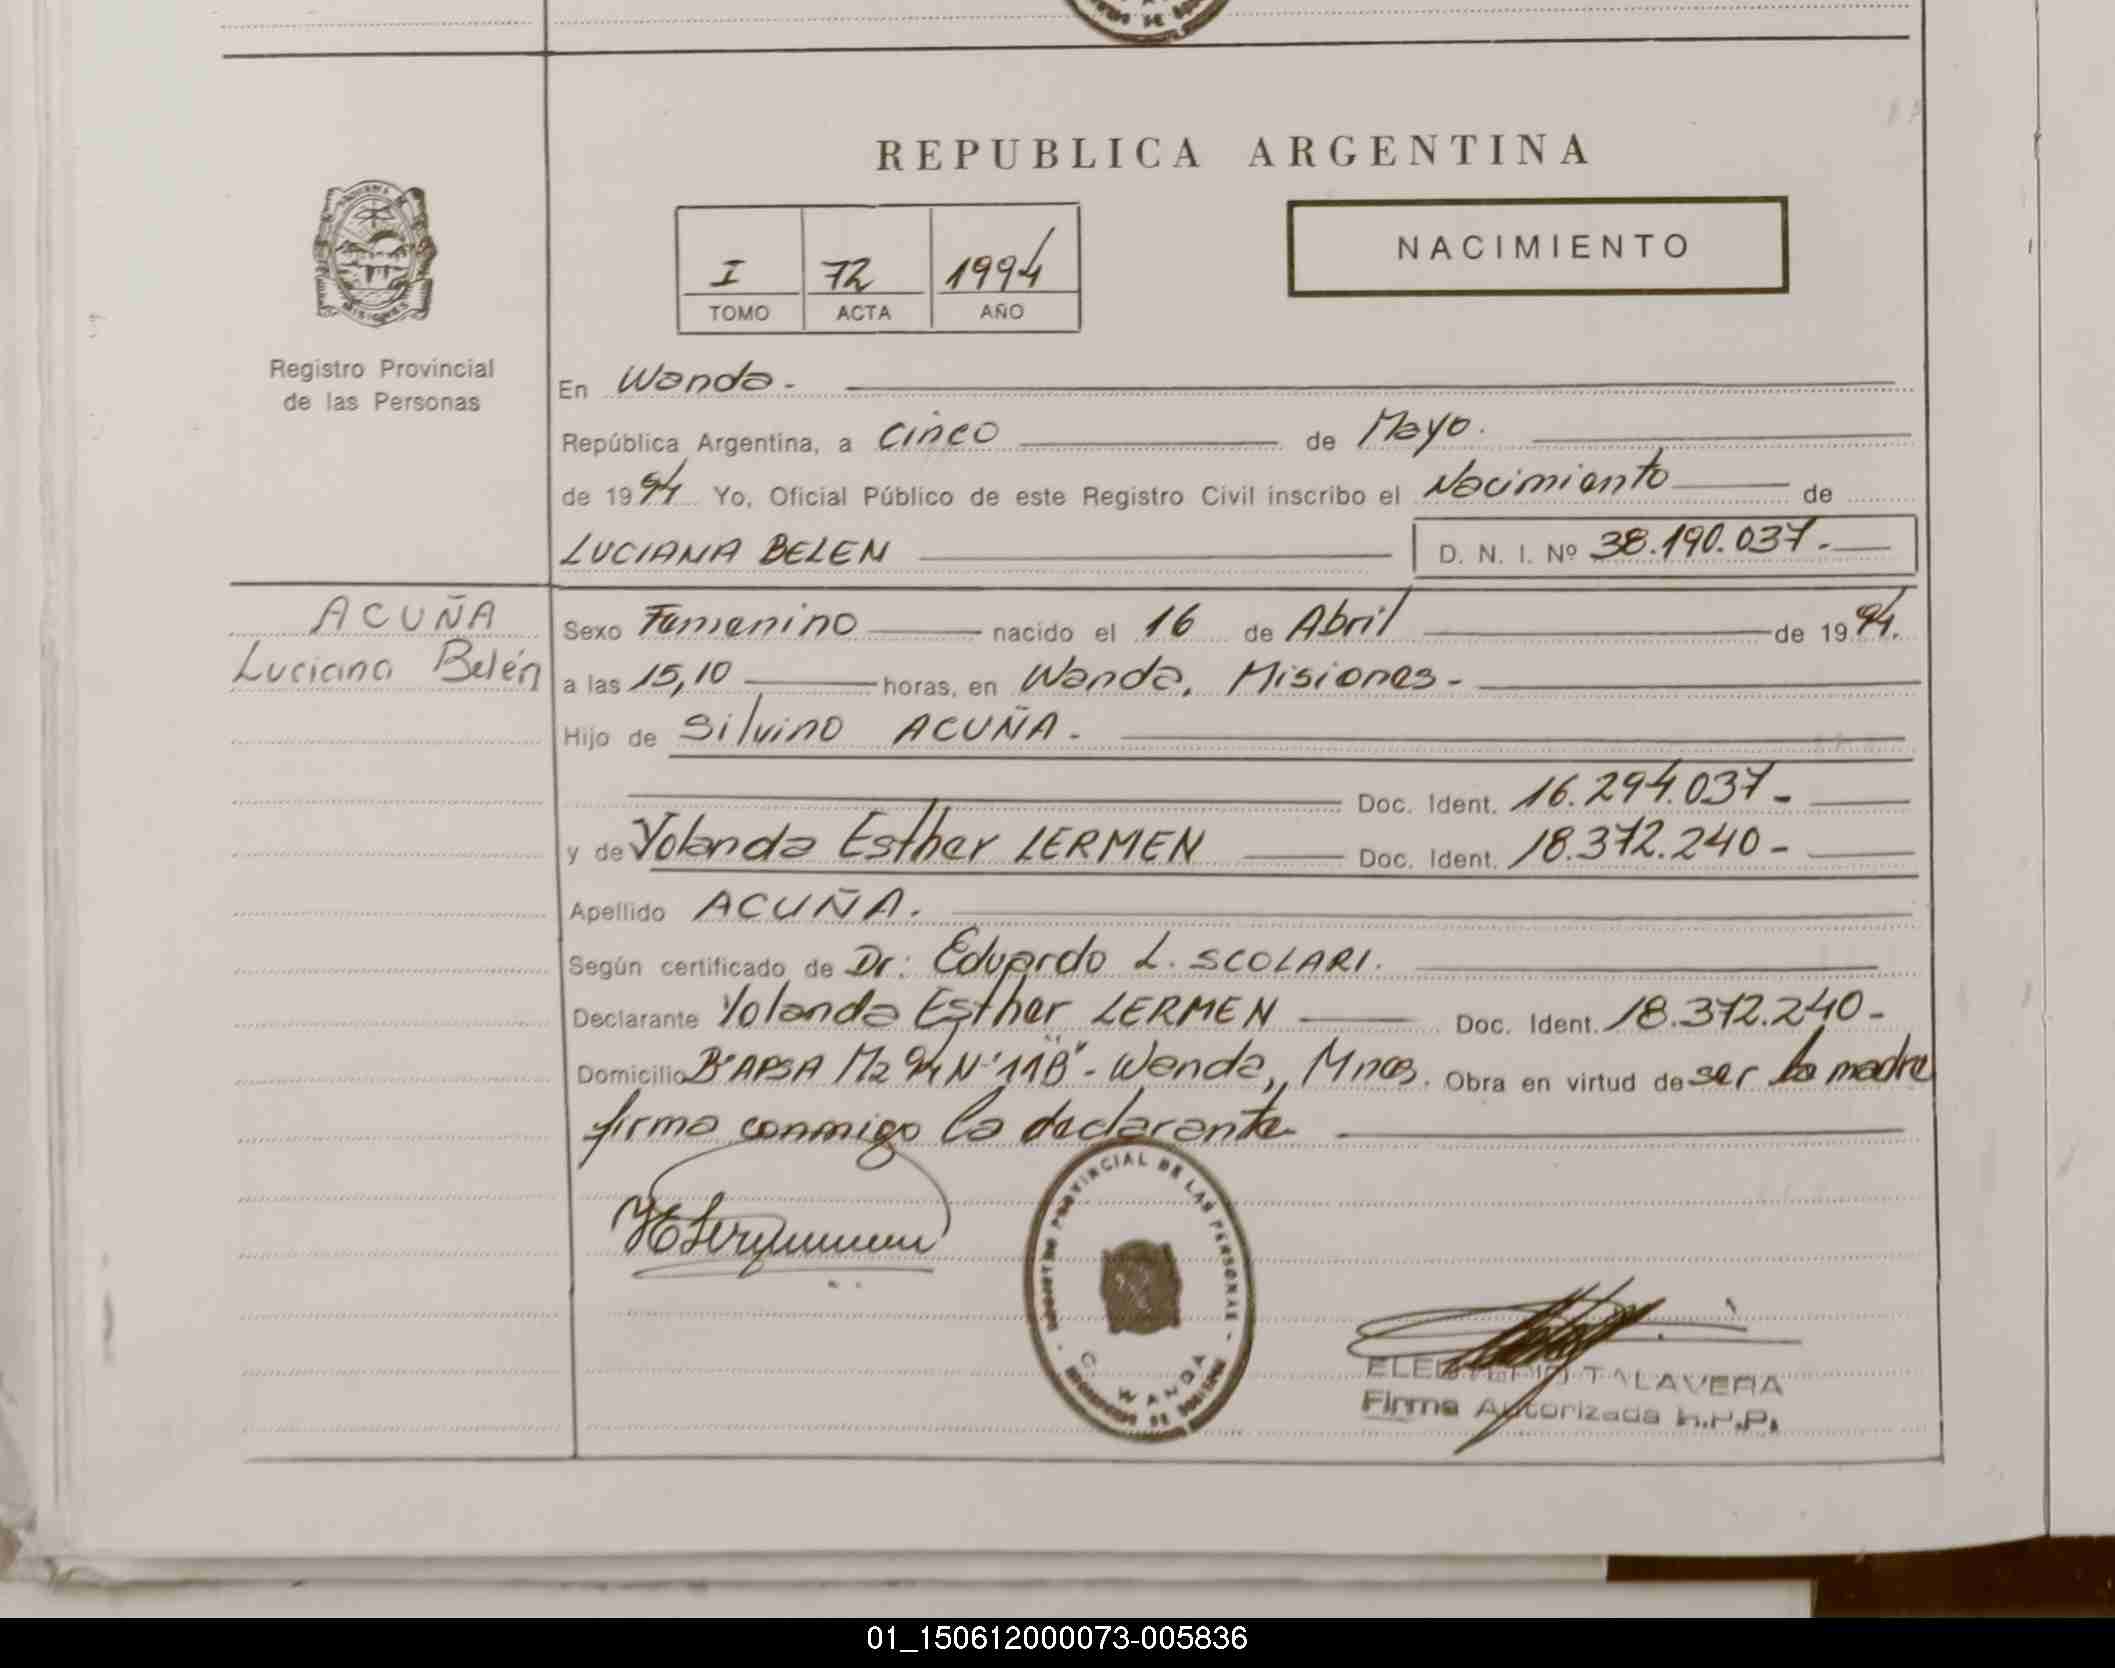 REPUBLICA ARGENTINA
NACIMIENTO
I 72 1994
TOMO ACTA AÑO
MISIONES
Registro Provincial
de las Personas
En Wanda.
República Argentina, a cinco de Mayo.
de 1994 Yo, Oficial Público de este Registro Civil inscribo el Nacimiento de
LUCIANA BELEN D. N. I. Nº 38.190.037.-
ACUÑA
Luciana Belén
Sexo Femenino nacido el 16 de Abril de 1994.
a las 15,10 horas, en Wanda, Misiones-
Hijo de Silvino ACUÑA.
Doc. Ident. 16.294.037-
y de Yolanda Esther LERMEN Doc. Ident. 18.372.240-
Apellido ACUÑA.
Según certificado de Dr: Eduardo L. SCOLARI.
Declarante Yolanda Esther LERMEN Doc. Ident. 18.372.240-
Domicilio Bº APSA Mz 94 Nº 11 "B"- Wanda, Mnes. Obra en virtud de ser la madre
firma conmigo la declarante
PROVINCIAL DE LAS PERSONAS
WANDA
TALAVERA
Firma Autorizada R.P.P.
01_150612000073-005836